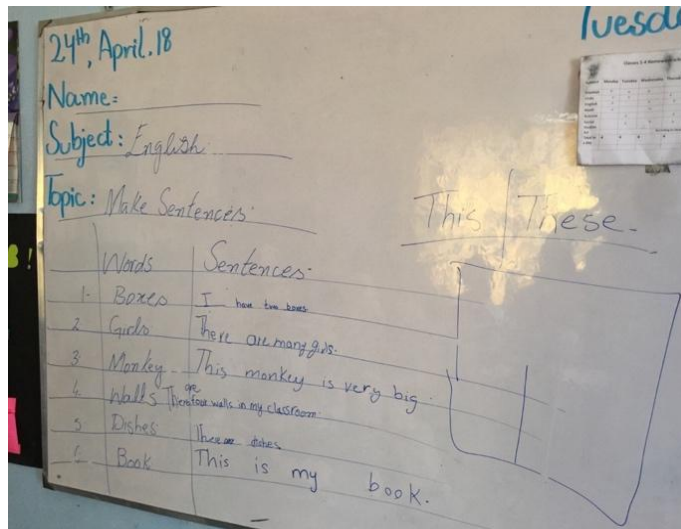 Tuesd
24th, April. 18
Name=
Subject: English
Topic: Make Sentences
This These
Words Sentences
1- Boxes I have two boxes
2 Girls There are many girls.
3 Monkey This monkey is very big
4 Walls There are four walls in my classroom
5 Dishes These are dishes
6 Book This is my book.